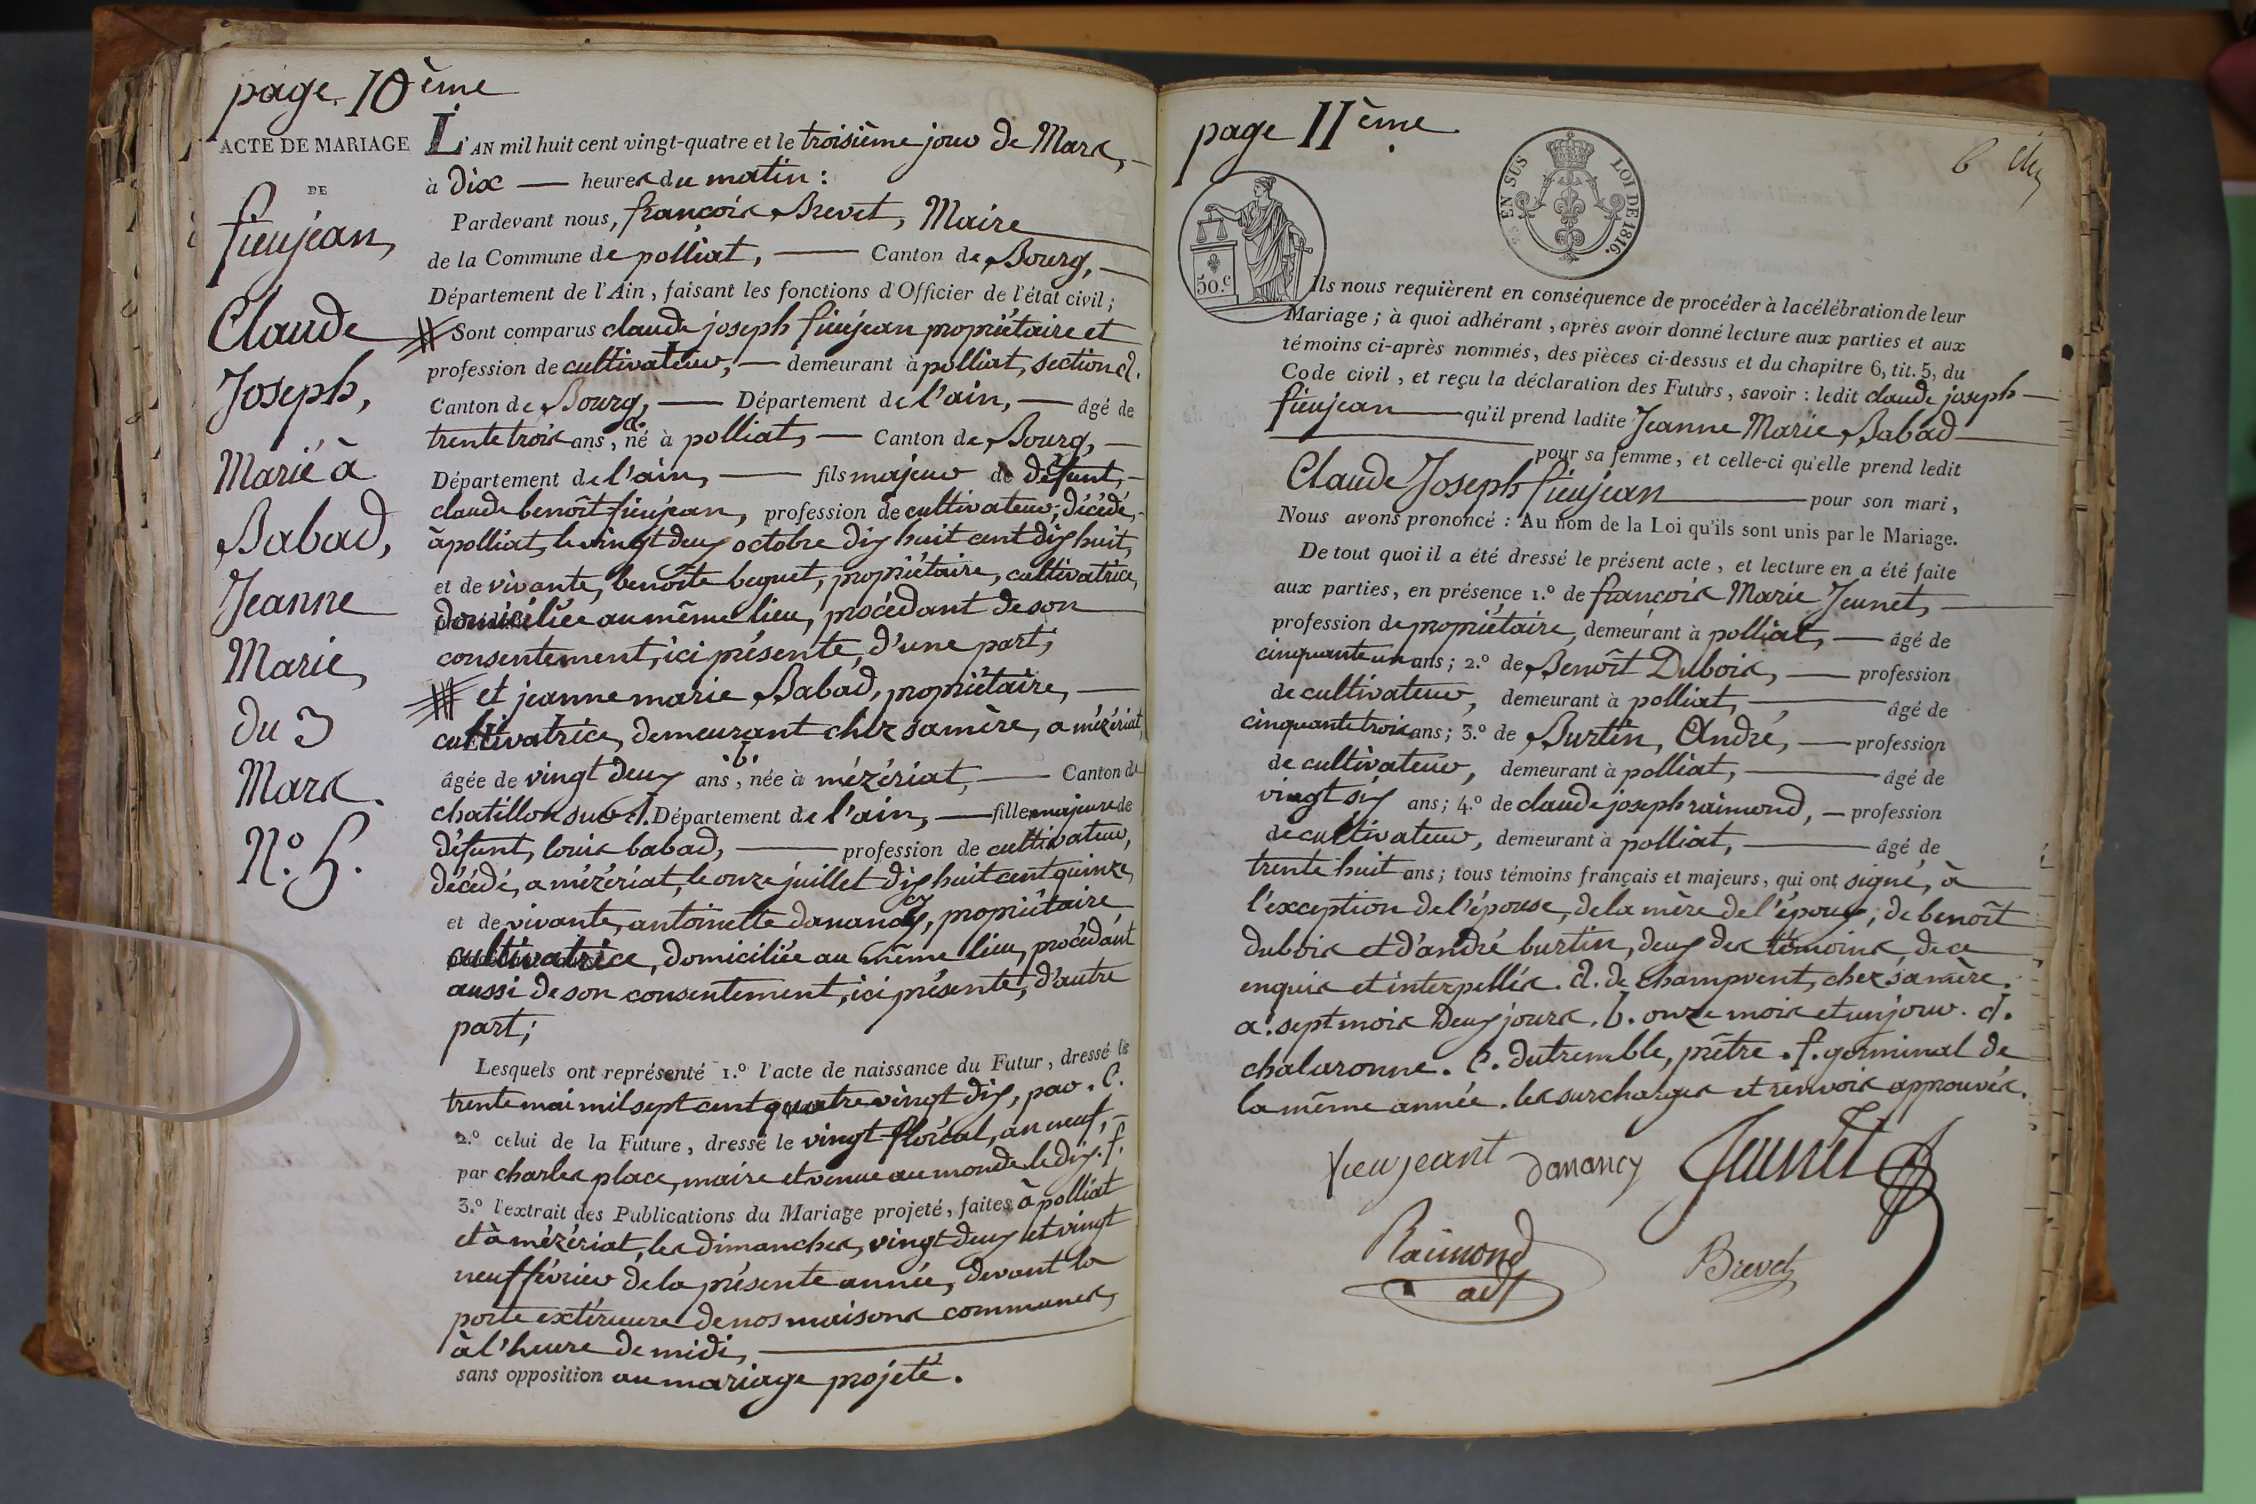 page 10ème
ACTE DE MARIAGE
DE
fieujean,
Claude
Joseph,
Marié à
Babad,
Jeanne
Marie,
du 3
Mars.
N.o 5.
L'AN mil huit cent vingt-quatre et le troisième jour de Mars,
à dix — heures du matin :
Pardevant nous, françois Brevet, Maire
de la Commune de polliat, — Canton de Bourg,
Département de l'Ain, faisant les fonctions d'Officier de l'état civil ;
Sont comparus claude joseph fieujean propriétaire et
profession de cultivateur, — demeurant à polliat, section d.
Canton de Bourg, — Département de l'ain, — âgé de
trente trois ans, a. né à polliat, — Canton de Bourg, —
Département de l'ain, — fils majeur de défunt, —
claude benoît fieujean, profession de cultivateur, décédé,
à polliat, le vingt deux octobre dix huit cent dix huit,
et de vivante, benoîte beguet, propriétaire, cultivatrice,
domiciliée au même lieu, procédant de son
consentement, ici présente, d'une part ;
et jeanne marie Babad, propriétaire, —
cultivatrice, demeurant chez sa mère, a mézériat,
âgée de vingt deux ans, b. née à mézériat, — Canton de
chatillon sur d. Département de l'ain, — fille majeure de
défunt, louis babad, — profession de cultivateur,
décédé, a mézériat, le onze juillet dix huit cent quinze,
et de vivante, antoinette danancy, propriétaire
cultivatrice, domiciliée au même lieu, procédant
aussi de son consentement, ici présente, d'autre
part ;
Lesquels ont représenté 1.o l'acte de naissance du Futur, dressé le
trente mai mil sept cent quatre vingt dix, par . e.
2.o celui de la Future, dressé le vingt floréal, an neuf,
par charles place, maire et venue au monde le dix. f.
3.o l'extrait des Publications du Mariage projeté, faites à polliat
et à mézériat, les dimanches, vingt deux et vingt
neuf février de la présente année, devant la
porte extérieure de nos maisons communes,
à l'heure de midi, —
sans opposition au mariage projeté.
page 11ème.
EN SUS
LOI DE 1816.
50.c
6
Ils nous requièrent en conséquence de procéder à la célébration de leur
Mariage ; à quoi adhérant, après avoir donné lecture aux parties et aux
témoins ci-après nommés, des pièces ci-dessus et du chapitre 6, tit. 5, du
Code civil, et reçu la déclaration des Futurs, savoir : ledit claude joseph —
fieujean — qu'il prend ladite Jeanne Marie Babad —
pour sa femme, et celle-ci qu'elle prend ledit
Claude Joseph fieujean — pour son mari,
Nous avons prononcé : Au nom de la Loi qu'ils sont unis par le Mariage.
De tout quoi il a été dressé le présent acte, et lecture en a été faite
aux parties, en présence 1.o de françois Marie Jeunet, —
profession de propriétaire, demeurant à polliat, — âgé de
cinquante un ans ; 2.o de Benoît Dubois, — profession
de cultivateur, demeurant à polliat, — âgé de
cinquante trois ans ; 3.o de Burtin, André, — profession
de cultivateur, demeurant à polliat, — âgé de
vingt six ans ; 4.o de claude joseph raimond, — profession
de cultivateur, demeurant à polliat, — âgé de
trente huit ans ; tous témoins français et majeurs, qui ont signé, à
l'exception de l'épouse, de la mère de l'époux, de benoît
dubois et d'andré burtin, deux des témoins, de ce
enquis et interpellés. d. de champvent, chez sa mère.
a. sept mois deux jours. b. onze mois et un jour. d.
chalaronne. e. dutremble, prêtre. f. germinal de
la même année. les surcharges et renvois approuvés.
fieujeant danancy Jeunet
Raimond Brevet
adj